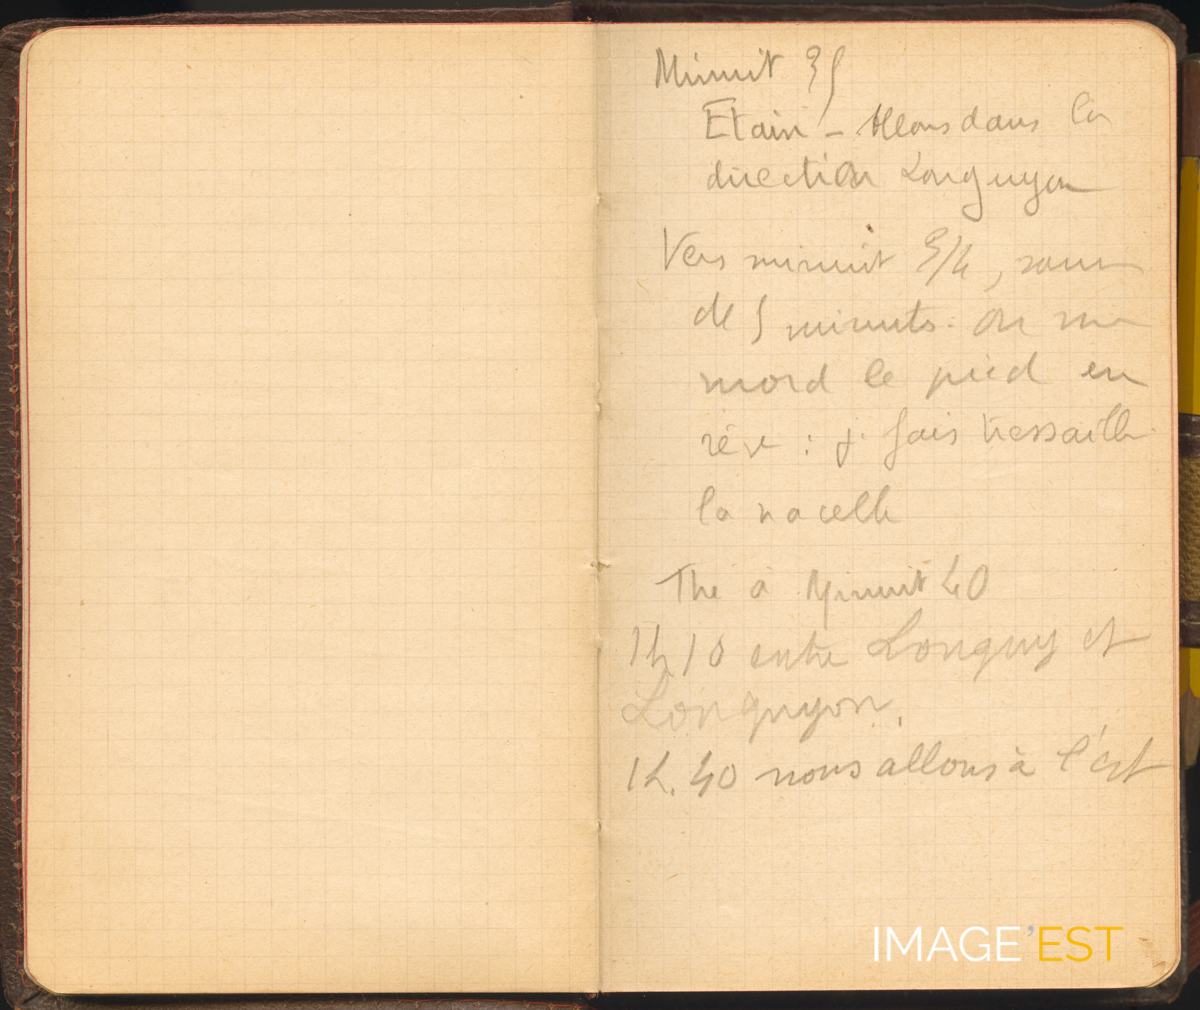 Minuit 35
Etain - Allons dans la
direction Longuyon
Vers minuit 3/4, somm
de 5 minutes. On me
mord le pied en
rêve : je fais tressaillir
la nacelle
Thé à Minuit 40
1h10 entre Longwy et
Longuyon.
1h.40 nous allons à l'est
IMAGE'EST